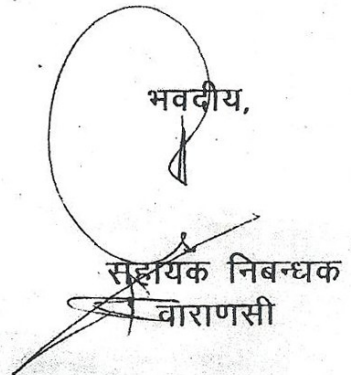 भवदीय,
सहायक निबन्धक
वाराणसी